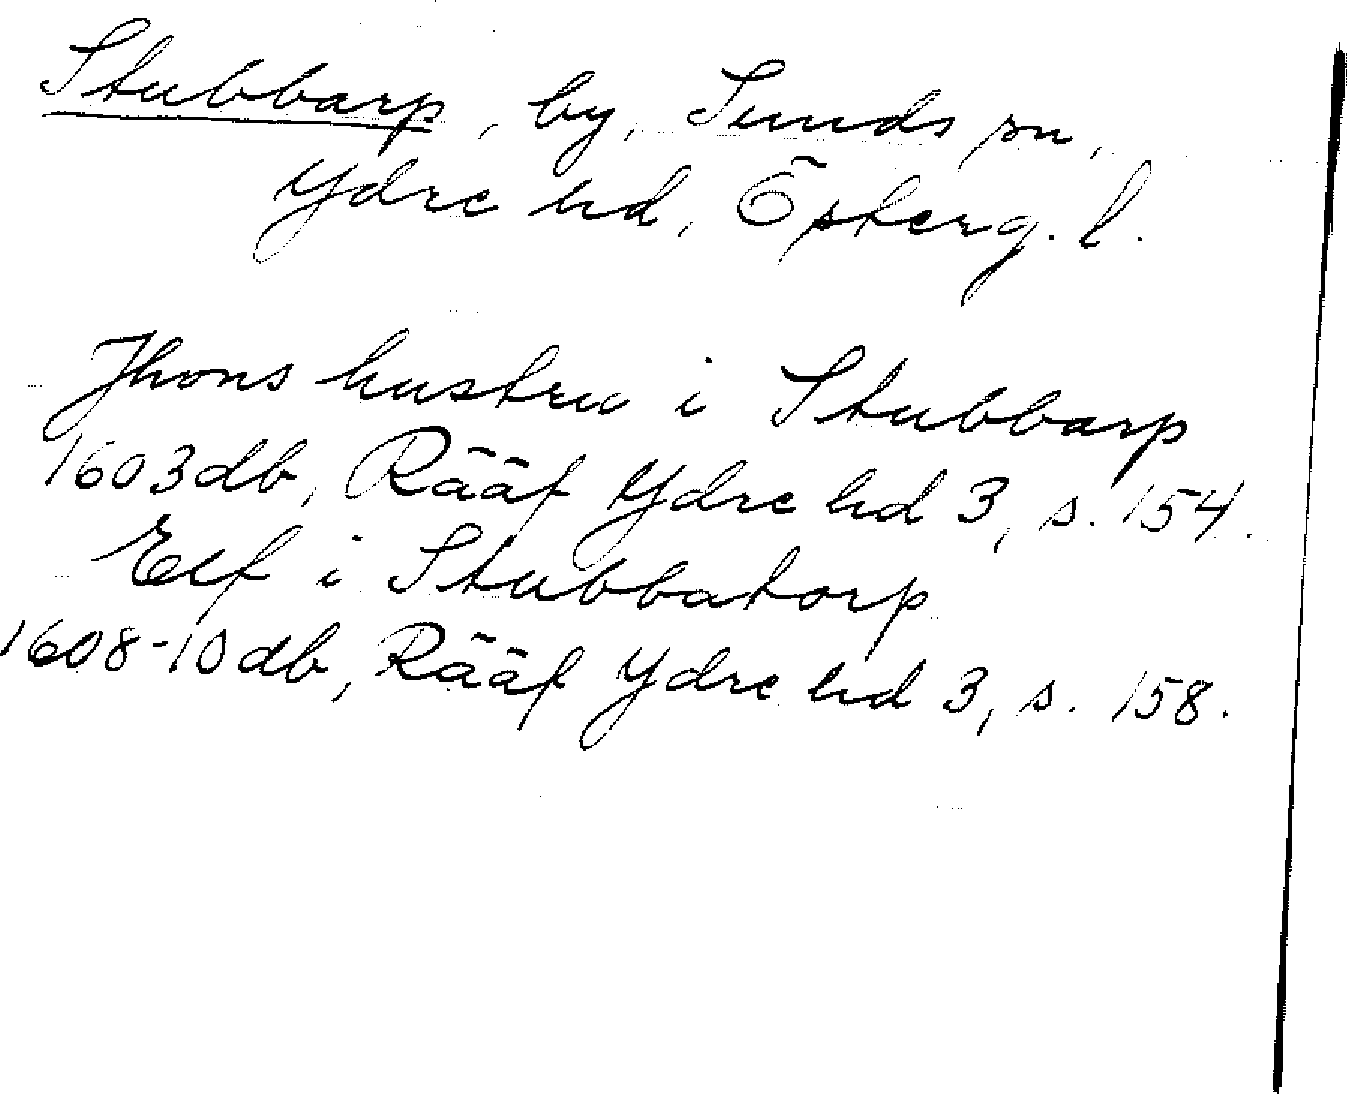 Stubbarp, by, Sunds sn,
Ydre hd, Österg. l.
Jhons hustru i Stubbarp
1603 db, Rääf Ydre hd 3, s. 154.
Elf i Stubbatorp
1608-10 db, Rääf Ydre hd 3, s. 158.